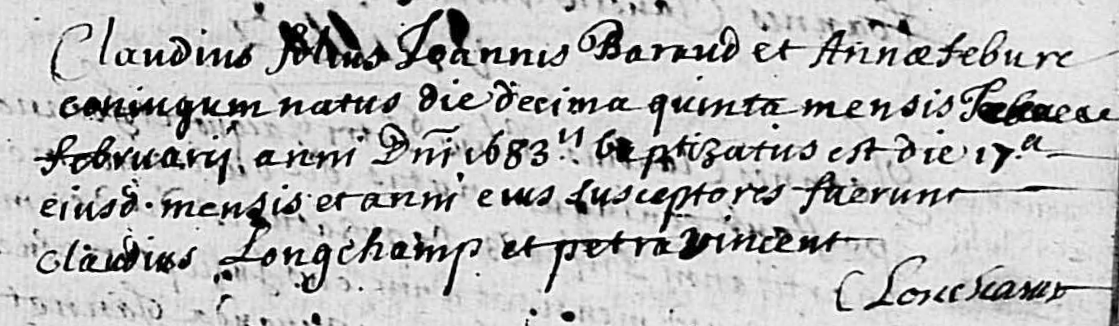 Claudius filius Joannis Baraud et Annæ febure
coniugum natus die decima quinta mensis
februarij anni Dni 1683ij baptizatus est die 17.a
eiusd. mensis et anni eius susceptores fuerunt
claudius Longchamp et petra vincent
C Lonchamp